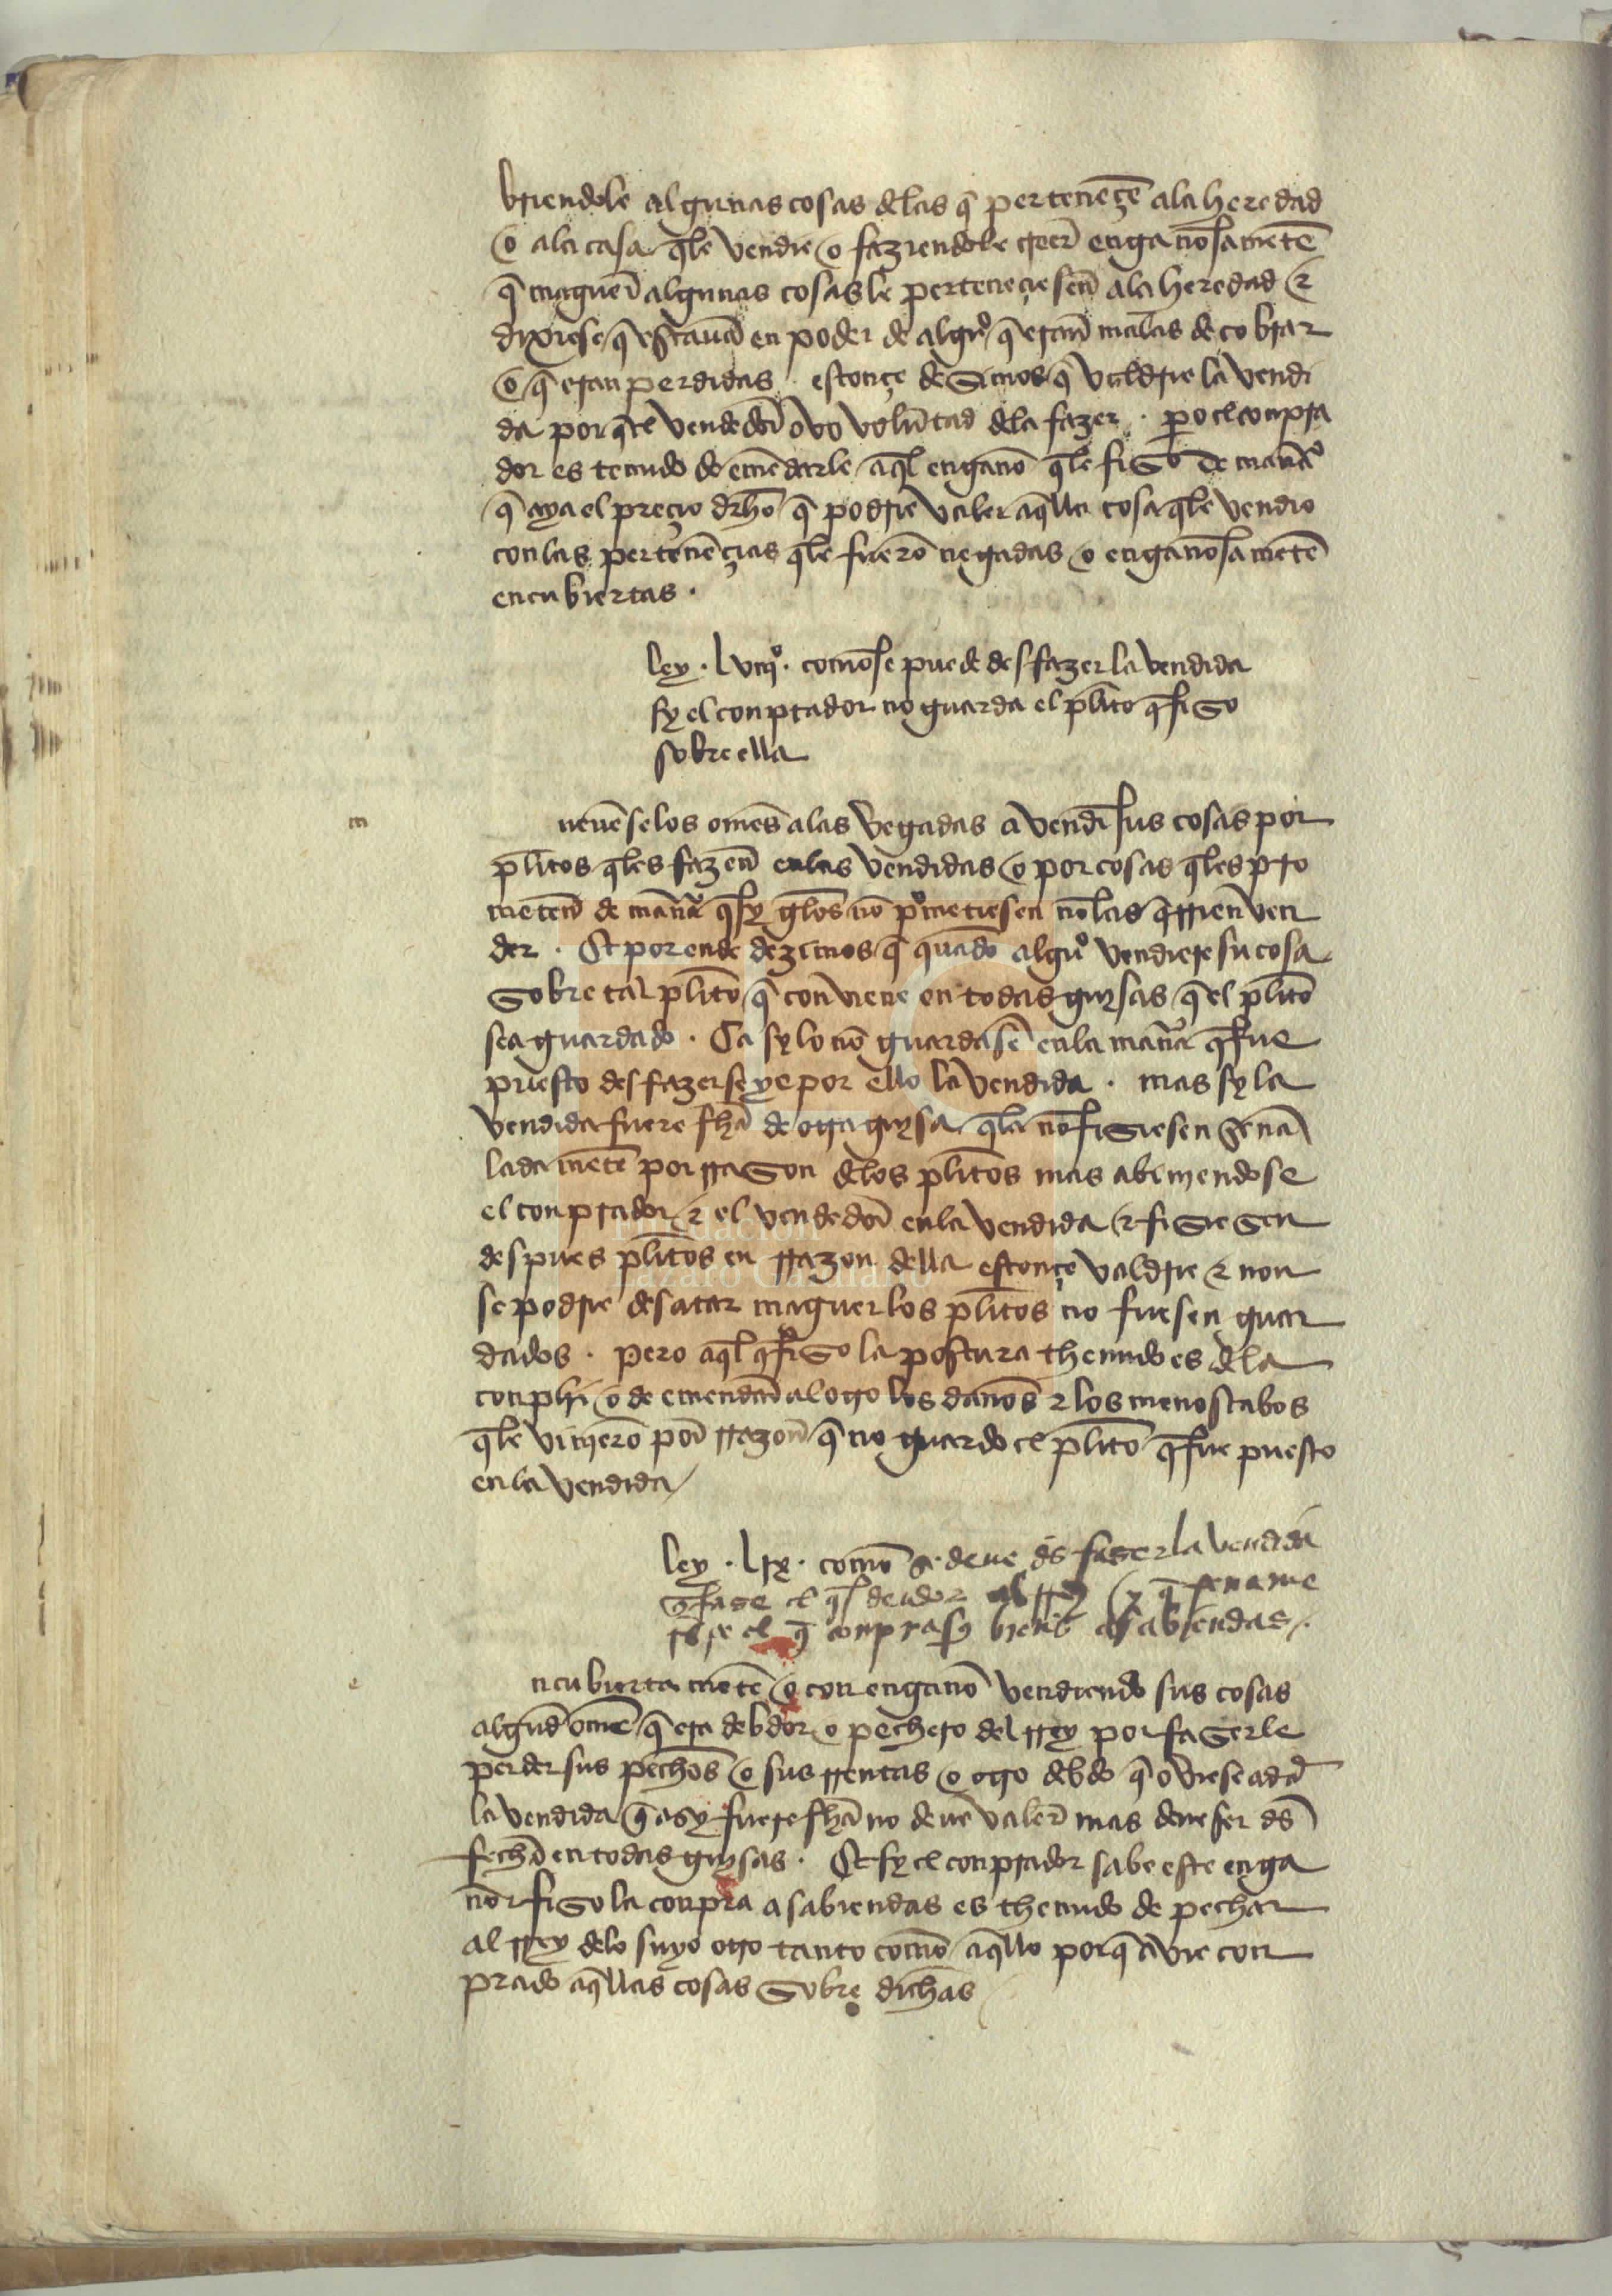 briendole algunas cosas dlas q̃ perteneçẽ ala heredad
o ala casa q̃le vendie o faziendole creer̃ engañosamẽte
q̃ maguer̃ algunas cosasle perteneçiesen̄ ala heredad ⁊
dixiese q̃ estauã en poder de algũo q̃ eran̄ malas de cobrar
o q̃ eran perdidas . estonçe desimos q̃ valdrie la vendi
da por q̃l vendedor̃ ovo volũtad dela fazer . pero el conpra
dor es tenudo de emẽdarle aq̃l engaño q̃le fiso de manͣa
q̃ aya el preçio drh̃o q̃ podrie valer aq̃lla cosa q̃le vendio
con las pertenẽçias q̃le fuerõ negadas o engañosamẽte
encubiertas .
ley . lviijº . comose puede desfazer la vendida
sy el conprador no guarda el pl̃ito q̃ fiso
sobre ella
m
ueuẽselos omẽs alas vegadas a vend̃ sus cosas por
pl̃itos q̃les fazen̄ enlas vendidas o por cosas q̃les pro
meten̄ de manͣa q̃ sy gelos nõ pͦmetiesen nõ las q̃rrien ven
der . Et por ende dezimos q̃ quãdo algũo vendiere su cosa
sobre tal pl̃ito q̃ conviene en todas guysas q̃ el pl̃ito
sea guardado . Ca sy lo nõ guardasẽ enla manͣa q̃ fue
puesto desfazerseye por ello la vendida . mas sy la
vendida fuere fh̃a de otra guysa q̃la nõ fisiesen señã
lada mẽte por rrason dlos pl̃itos mas abiniendose
el conprador ⁊ el vendedor̃ enla vendida ⁊ fisiesen
despues pl̃itos en rrazon della estonçe valdrie ⁊ non
se podrie desatar maguer los pl̃itos no fuesen guar
dados . pero aq̃l q̃ fiso la postura thenudo es dla
conplir̃ o de emendar̃ al otro los daños ⁊ los menoscabos
q̃le vinierõ por̃ rrazon̄ q̃ no guardo el pl̃ito q̃ fue puesto
enla vendida
ley . lix . como se deue dsfaser la vendida
q̃ fase el q̃ es deudor al rrey
el q̃ conpra sus bienes a sabiendas
e
ncubierta mẽte o con engaño vendiendo sus cosas
algund omẽ q̃ era debdor o pechero del rrey por faserle
perder sus pechos o sus rrentas o otro debdo q̃ oviese adar̃
la vendida q̃ asy fuere fh̃a no deue valer̃ mas deue ser ds̃
fecha en todas guysas . Et sy el conprador sabe este enga
ño ⁊ fiso la conpra a sabiendas es thenudo de pechar
al rrey delo suyo otro tanto como aq̃llo porq̃ avie con
prado aq̃llas cosas sobre dichas